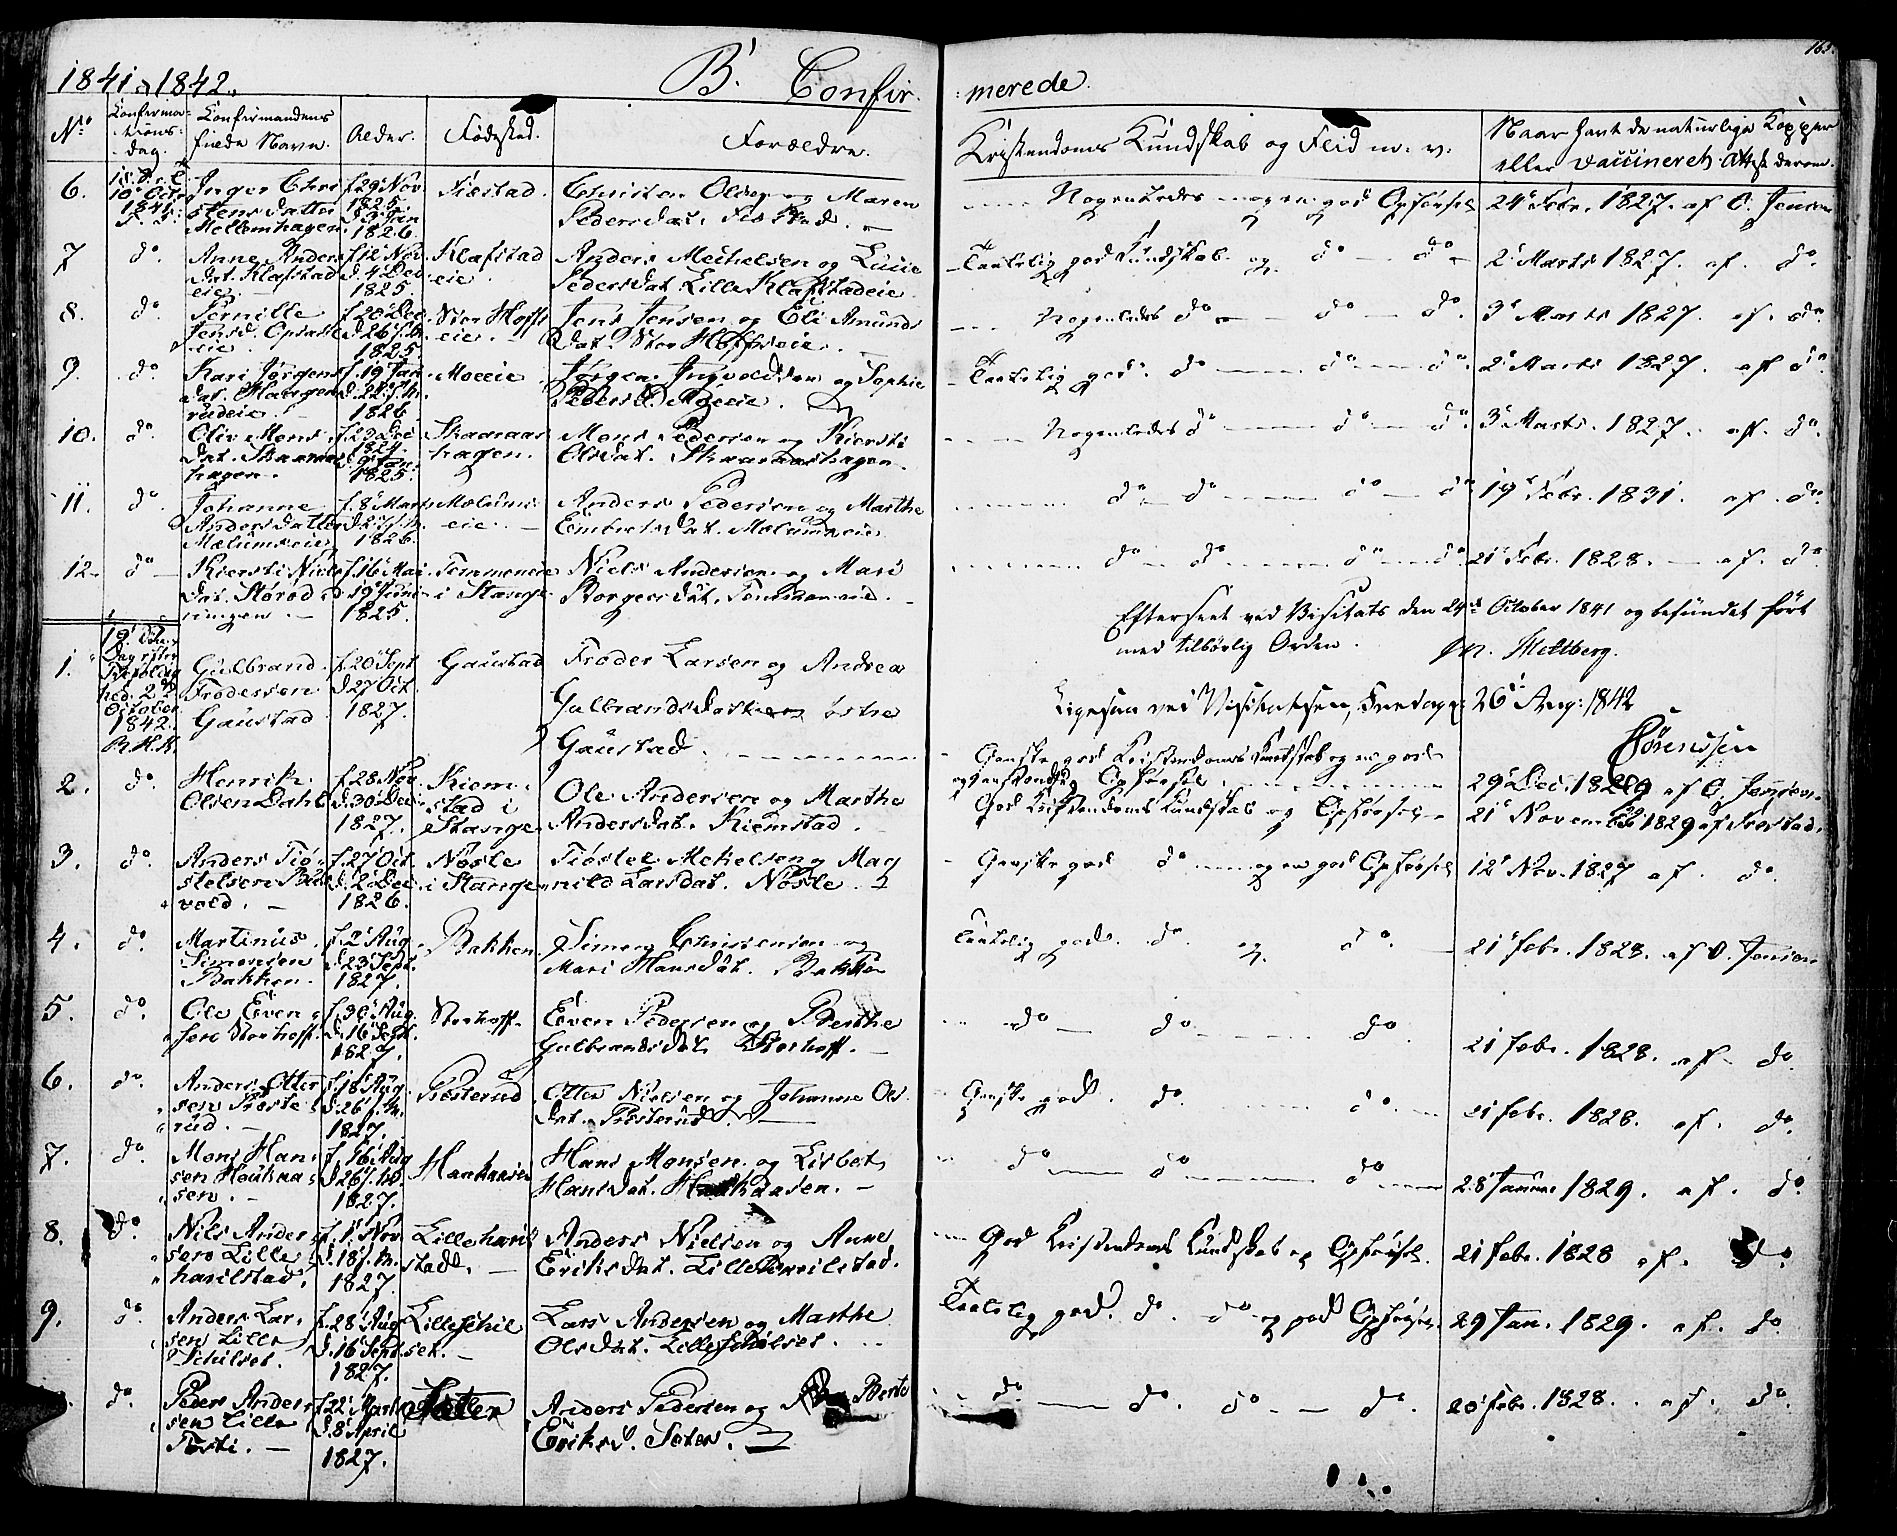 1841 & 1842.
B. Confir-
merede.
163.
No
Confirma-
tions-
dag.
Confirmandens
fulde Navn.
Alder.
Fødested.
Forældre.
Kristendoms Kundskab og Flid m. v.
Naar havt de naturlige Kopper
eller vaccineret. Attest derom.
6.
1841
Inger Chri
stensdatter
Mellemhagen
f. 29 Nov.
1825.
d. 3 Jan
1826.
Fiæstad.
Christen Olsen og Maren
Pedersdat. Fiæstad. —
Nogenledes og god Opførsel
24 Febr. 1827. af O. Jensen
7
do.
Anne Anders
dat. Klafstad
eie. —
f. 12 Nov.
d. 4 Dec
1825.
Klafstad
eie.
Anders Michelsen og Lucie
Pedersdat. Lille Klafstadeie.
Taalelig god Kundskab og do — do
2 Marts 1827. af. do.
8.
do.
Pernille
Jensd. Opsahl
eie.
f. 20 Dec.
d. 26 s. M.
1825.
Stor Hoffs
eie. —
Jens Jensen og Eli Amunds
dat. Stor Hoffseie. —
Nogenledes do — do — do.
3 Marts 1827. af. do.
9.
do.
Kari Jørgens
dat. Haagen
rudeie.
f. 19 Jan.
d. 22 s. M.
1826
Moeeie
Jørgen Ingvoldsen og Sophie
Pedersd. Moeeie.
Taalelig god. do — do — do.
2 Marts 1827 af do.
10.
do.
Oliv. Mons
dat. Skaaraas
hagen.
f. 29 Dec
1824.
d. 9 Jan.
1825.
Skaaraas
hagen.
Mons Pedersen og Kiersti
Olsdat. Skaaraashagen.
Nogenledes do — do — do.
3 Marts. 1827. af. do.
11.
do.
Johanne
Andersdatter
Mælumseie
f. 8 Marts
d. 27 s. M.
1826.
Mælums
eie. —
Anders Pedersen og Marthe
Embretsdat. Mælumseie
do — do — do — do
19 Febr. 1831. af. do.
12.
do
Kiersti Niels
dat. Størød
ringen. —
f. 16 Mai
d. 19 Juni
1825.
i Stange
Niels Andersen og Mari
Borgersdat.
do — do — do — do
21 Febr. 1828. — af. do.
Efterseet ved Visitats den 24de October 1841 og befundet ført
med tilbørlig Orden.
m. Meltberg.
Ligesaa ved Visitatsen, Fredag 26 Aug: 1842
Sørenssen
1.
19. Søn-
Dag efter
Trefoldig
hed. 2
October
1842.
Gulbrand
Frodesen
Gaustad
f. 20 Sept
d. 27 Oct.
1827.
Gaustad
Froder Larsen og Andrea
Gulbrandsdatter
Gaustad.
Ganske god Kristendoms Kundskab og en god
Opførsel
29 Dec. 1829 af O. Jensen.
2.
do.
Henrik
Olsen Dahl
f. 28 Nov
d. 30 Dec.
1827.
Kiem-
stad i
Stange.
Ole Andersen og Marthe
Andersdat. Kiemstad. —
God Kristendoms Kundskab og Opførsel
21 November 1829 af Frostad.
3.
do.
Anders Tiø-
stelsen
vold. —
f. 27 Oct.
d. 2 Dec.
1826.
Nøsle
i Stange
Tiøstel Mekelsen og Mag
nild Larsdat. Nøsle.
Ganske god do — og en god Opførsel
12 Nov. 1827 af. do.
4.
do.
Martinus
Simensen
Bakken.
f. 2 Aug
d. 23 Sept.
1827.
Bakken
Simen Christensen og
Mari Hansdat. Bakken
Taalelig god. do. og do.
21 febr. 1828. af O. Jensen
5.
do.
Ole Even-
sen Storhoff.
f. 30 Aug.
d. 16 Sept.
1827.
Storhoff.
Even Pedersen og Berthe
Gulbrandsdat. Storhoff. —
do — do — do
21 febr. 1828. af. do.
6.
do.
Anders Otter
sen Prøste-
rud. —
f. 18 Aug.
d. 26 s. M.
1827.
Prøsterud
Otter Nielsen og Johanne Ols
dat. Prøsterud. —
Ganske god. do. — do. —
21 febr. 1828. af. do.
7.
do.
Mons Han-
sen Houkaa-
sen. —
f. 16 Aug
d. 26 s. M.
1827.
Haakaasen
Hans Monsen og Lisbet
Hansdat. Haakaasen. —
do — do — do
28 Januar 1829. af. do.
8.
do.
Nils Ander-
sen Lille
harilstad.
f. 1 Nov
d. 18 s. M.
1827.
Lilleharil
stad. —
Anders Nielsen og Anne
Eriksdat. Lilleharilstad.
God Kristendoms Kundskab og Opførsel.
21 febr. 1828 af. do.
9.
do.
Anders Lar-
sen Lille
Schilset.
f. 28 Aug
d. 16 Sept.
1827.
Lilleschil
set. —
Lars Andersen og Marthe
Olsdat. Lilleschilset.
Taalelig god. do. do og god Opførsel.
29 Jan. 1829. af. do.
do.
Peder Anders
sen Lille
Tosti. —
f. 22 Marts
d. 8 April
1827.
Sæter
Anders Pedersen og Berte
Eriksd. Seter.
do — do. do — do.
20 febr. 1828. af. do.